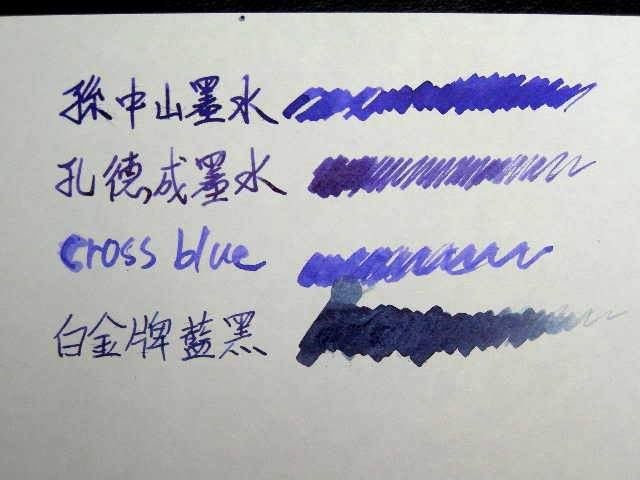 孫中山墨水
孔德成墨水
cross blue
白金牌藍黑